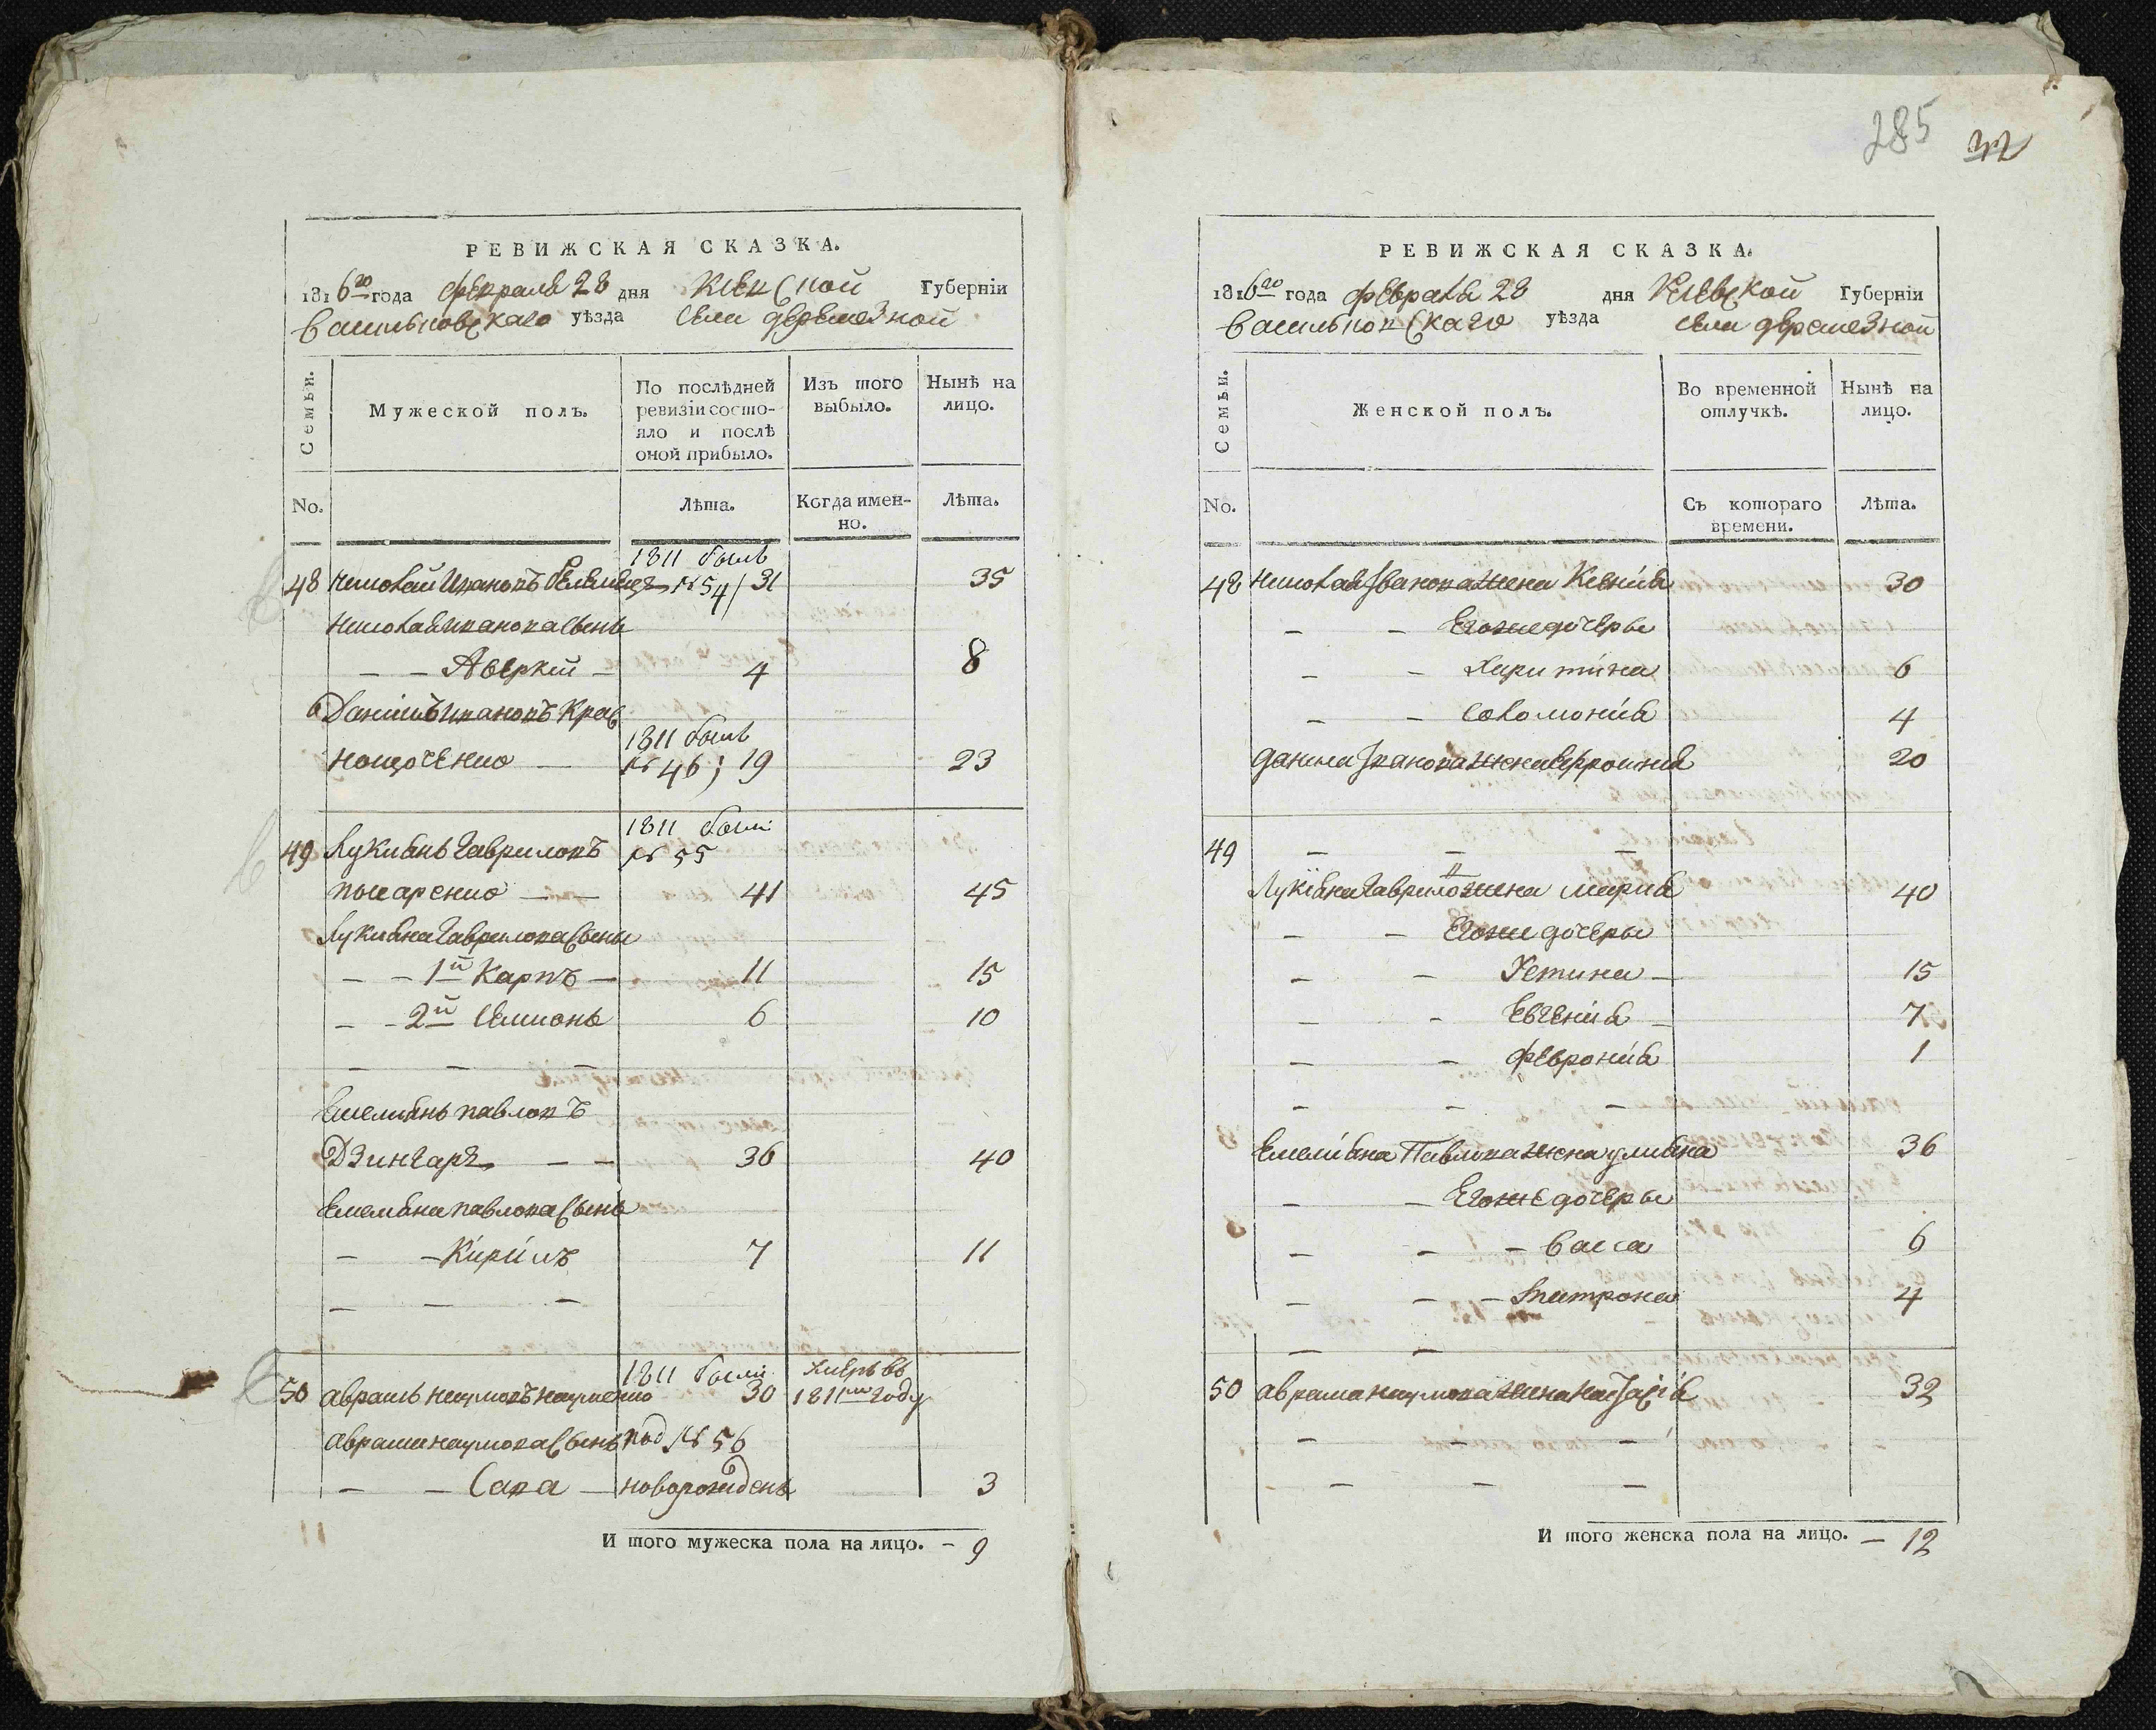 285 32
РЕВИЖСКАЯ СКАЗКА.
1816го года февраля 28 дня Киевской Губерніи
Васильковскаго уѣзда Села деремезной
Семьи. Мужеской полъ. По послѣдней ревизіи состояло и послѣ оной прибыло. Изъ того выбыло. Нынѣ на лицо.
No. Лѣта. Когда именно. Лѣта.
1811 былъ
48 Николай Ивановъ №54/31 35
Николая Иванова сынъ
— — Аверкій — 4 8
Даніилъ Ивановъ Крас
1811 былъ
нощоченко — №46; 19 23
1811 были
49 Лукиянъ Гавриловъ №55
понаренко — — 41 45
Лукияна Гаврилова сыны
— — 1й Карпъ — 11 15
— — 2й Семионъ 6 10
— — —
Емелиянъ павловъ
Дзингаръ — — 36 40
Емелияна павлова сынъ
— — Кирилъ 7 11
— — —
1811 были умеръ въ
50 аврамъ наумовъ науменко 30 1811м году
аврама наумова сынъ под №56
— — Сава — новорожденъ 3
И того мужеска пола на лицо. — 9
РЕВИЖСКАЯ СКАЗКА.
1816го года февраля 28 дня Киевской Губерніи
Васильковскаго уѣзда села деремезной
Семьи. Женской полъ. Во временной отлучкѣ. Нынѣ на лицо.
No. Съ котораго времени. Лѣта.
48 Николая Іванова жена Ксенія 30
— — Егоже дочеры
— — Харитина 6
— — Соломонія 4
данила Іванова жена 20
49 — — —
Лукіяна Гаврилова жена мария 40
— — Егоже дочеры
— — Устина — 15
— — Евгенія — 7
— — февронія 1
— — —
Емеліяна Павлова жена улияна 36
— — Егоже дочеры
— — — Васса 6
— — — 4
— —
50 аврама наумова жена 32
— — —
— — —
И того женска пола на лицо. — 12